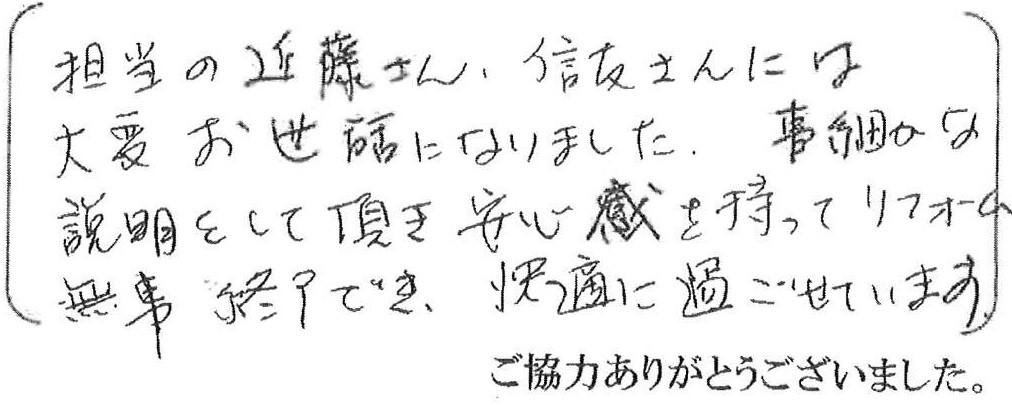 担当の近藤さん、信友さんには
大変お世話になりました. 事細かな
説明をして頂き安心感を持ってリフォーム
無事終了でき、快適に過ごせています.
ご協力ありがとうございました。